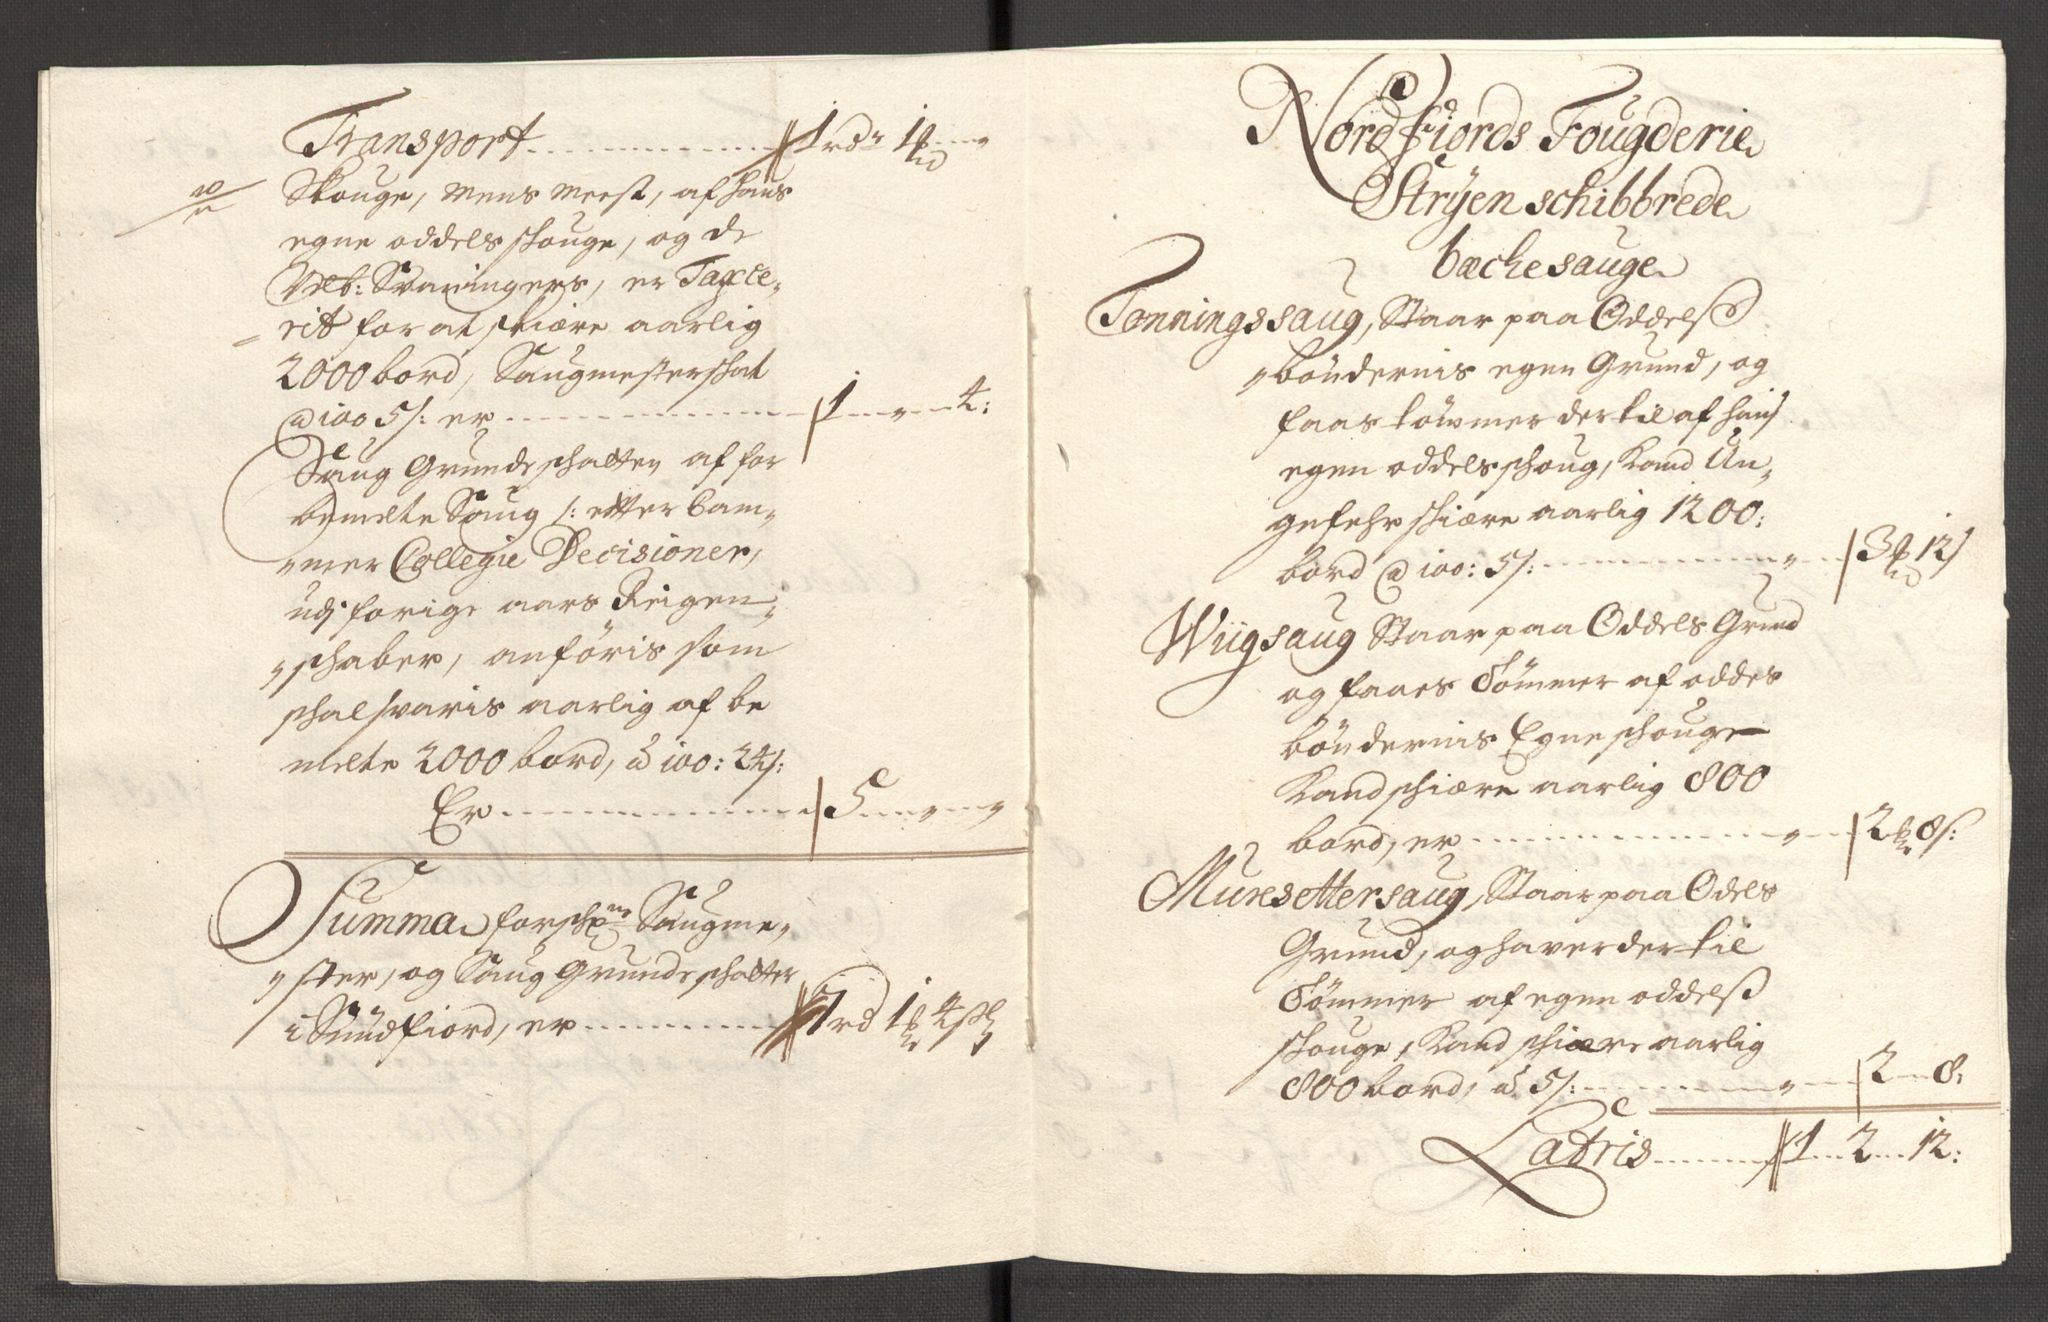 Transport 1 rdr 1 ₻
Skouge, mens meest, af hans
egne oddels skouge, og de
Vdb: Svaringers, er Taxce-
rit for at skiære aarlig
2000 bord, Saugmesterskat
@ 100 5 s: er 1 " 4:
Saug Grunde skatten af for
bemelte Saug /: efter Cam-
mer Collegie Decisioner,
udj forige aars Reigen-
skaber, anföris som
skal svaris aarlig af be
melte 2000 bord, à 100: 24 s:
Er 5 " "
Summa forschne Saugme-
ster, og Saug Grunde skatter
i Sundfiord, er 7 rd 1 ₻ 4 sk
Nordfiords Fougderie
Stryen schibbrede
bæche sauge
Tonningssaug, Staar paa Oddelss
böndernis egen Grund, og
faar tömmer der til af hans
egen oddels skoug, Kand Un-
gefehr skiære aarlig 1200:
bord @ 100: 5 s: 3 ₻ 12 s
Wiigsaug Staar paa Oddels Grund
og faaes Tömmer af oddes
böndernis Egne skouge
Kand skiære aarlig 800
bord, er 2 ₻ 8 s:
Muresettersaug, Staar paa Odels
Grund, og haver der til
Tömmer af egen oddelss
skouge, Kand skiære aarlig
800 bord, à 5 s: 2 8
Latris 1 2 12: